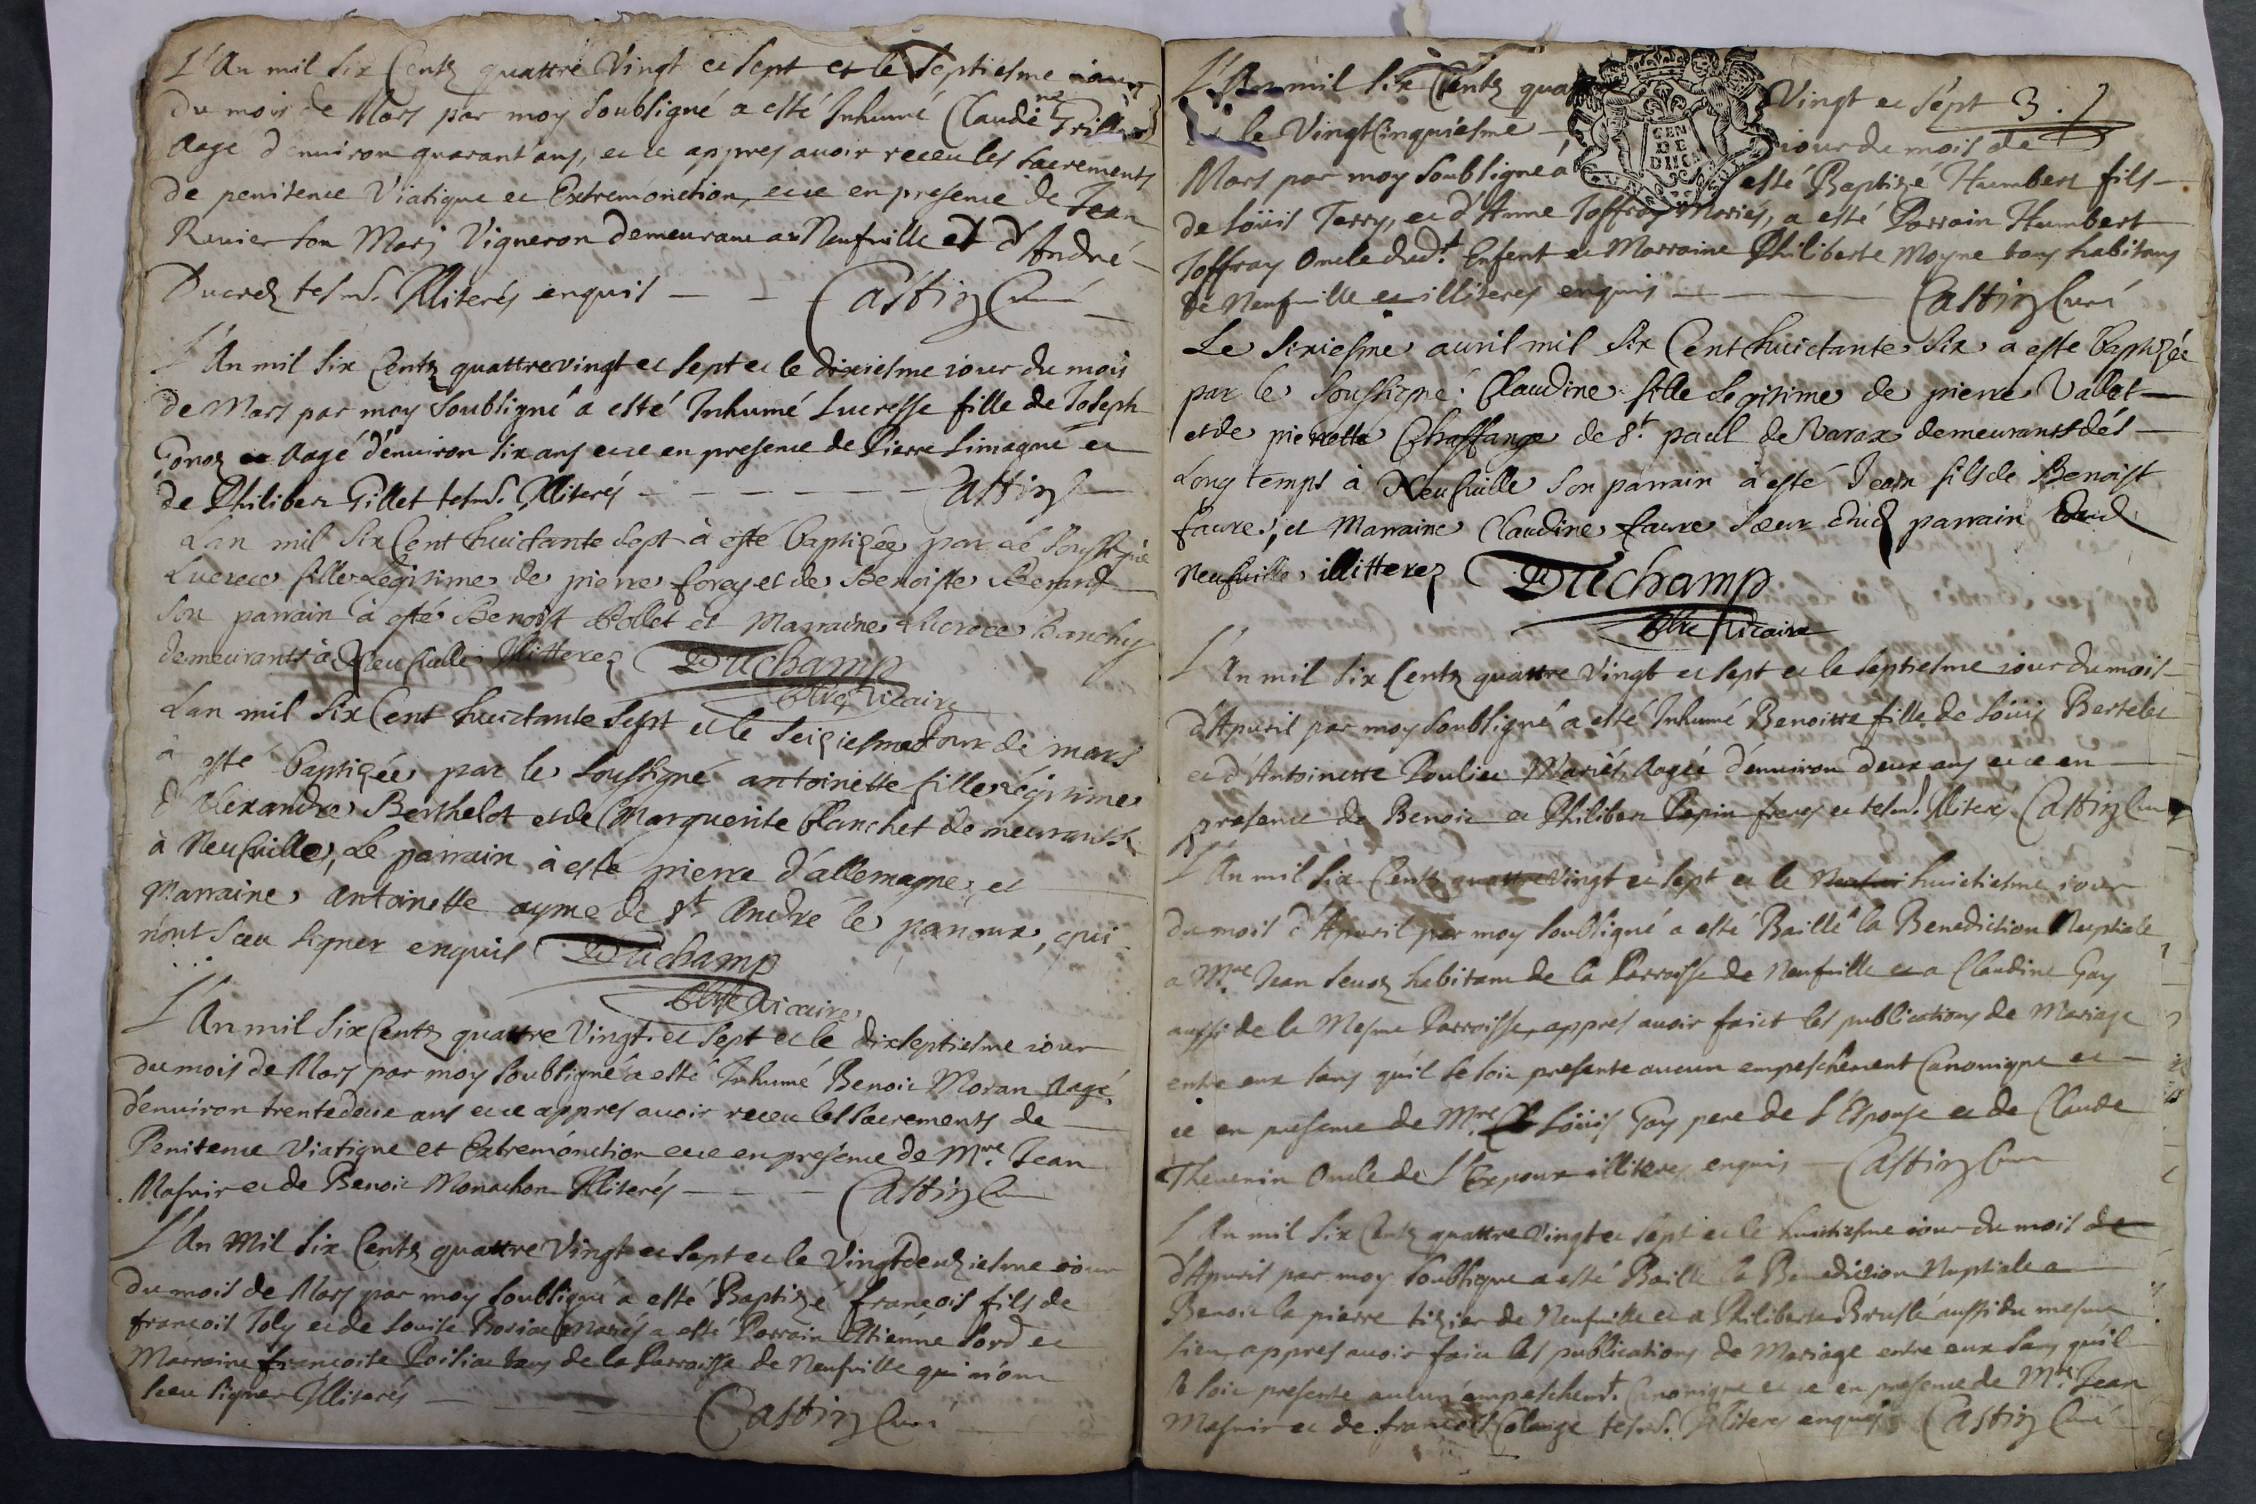 L'An mil six Centz quattre Vingt et sept et le septiesme iour
du mois de Mars par moy soubsigné a esté Inhumé Claudine Grillet
Aage d'enuiron quarant'ans, et ce appres auoir receu les sacrements
de penitence Viatique et Extremonction, et ce en presence de Jean
Rauier son Mary Vigneron demeurant a Neufuille et d'André
Ducrez tesmd. Illiterés enquis - - Castin Curé
L'An mil six Centz quattrevingt et sept et le dixiesme iour du mois
de Mars par moy soubsigné a esté Inhumé Lucresse fille de Joseph
Gonoz et Aagé d'enuiron six ans et ce en presence de Pierre Limagne et
de Philiber Gillet tesmd. Illiterés - - - - - - Castin
Lan mil six Cent huictante sept à esté baptizée par le soussigné
Lucrece fille Legitime de pierre forey et de Benoiste Berard
son parrain à esté Benoist Pollet et Marraine Lucrece Banchy
demeurants à Neufuille Illitterez Duchamp
Pbre Vicaire
Lan mil six Cent huictante sept et le seiziesme Jour de mars
à esté baptizée par le soussigné antoinette fille légitime
d'Alexandre Berthelot et de Marguerite Planchet demeurants
à Neufuille, Le parrain à esté pierre d'allemagne, et
Marraine antoinette ayme de st. André le panoux, qui
n'ont sceu signer enquis Duchamp
Pbre Vicaire
L'An mil six Centz quattre Vingt et sept et le dixseptiesme iour
du mois de Mars par moy soubsigné a esté Inhumé Benoit Moran Aagé
d'enuiron trentedeux ans et ce appres auoir receu les sacrements de
Penitence Viatique et Extremónction et ce en presence de Mre. Jean
Masnir et de Benoit Monachon Illiterés - - - Castin Curé
L'An Mil six Centz quattre Vingt et sept et le Vingtdeuziesme iour
du mois de Mars par moy soubsigné a esté Baptizé françois fils de
françois Joly et de Louise Mariés a esté Parrain Etienne Sord et
Marraine françoise Poisiat tous de la Parroisse de Neufuille qui n'ont
sceu signer Illiterés - - - - Castin Curé
L'An mil six Centz quattre Vingt et sept 3.
et le VingtCinquiesme - iour du mois de
Mars par moy soubsigné a esté Baptizé Humbert fils
de Loüis Terry, et d'Anne Joffray Mariés, a esté Parrain Humbert
Joffray Oncle dudt. Enfent et Marraine Philiberte Moyne tous habitans
de Neufuille et illiteres enquis - - - Castin Curé
GEN
DE
DIION
Le sixiesme auril mil six Cent huictante six a esté baptizée
par le soussigné Claudine fille legitime de pierre Vallet
et de pierrette Chaffange de st. paul de Varax demeurants dés
Long temps à Neufuille son parrain à esté Jean fils de Benoist
faure, et Marraine Claudine faure sœur dud parrain dud
Neufuille illitterez Duchamp
Pbre Vicaire
L'An mil six Centz quattre Vingt et sept et le septiesme iour du mois
d'Apuril par moy soubsigné a esté Inhumé Benoitte fille de Loüis Bertelet
et d'Antoinette Pouliet Mariés, Aagée d'enuiron deux ans et ce en
presence de Benoit et Philiber Pepin freres et tesmd. Illiterés Castin Curé
L'An mil six Centz quattreVingt et sept et le huictiesme iour
du mois d'Apuril par moy soubsigné a esté Baillé la Benediction Nuptiale
a Mre Jean Seuoz habitant de la Parroisse de Neufuille et a Claudine Gay
aussi de la Mesme Parroisse, appres auoir faict les publications de Mariage
entre eux sans qu'il se soit presente aucun empeschement Canonique et
ce en presence de Mre. Loüis Gay pere de l'Espouse et de Claude
Theuenin Oncle de l'Expoux illiteres enquis - Castin Curé
L'An mil six Centz quattre Vingt et sept et le huictiesme iour du mois de
d'Apuril par moy soubsigne a esté Baillé la Benediction Nuptiale a
Benoit la pierre tixier de Neufuille et a Philiberte Bruslé aussi du mesme
Lieu, appres auoir faict les publications de Mariage entre eux sans qu'il
se soit presenté aucun empeschemt. Canonique et ce en presence de Mre. Jean
Masnir et de françois Colange tesmd. Illiteres enquis Castin Curé